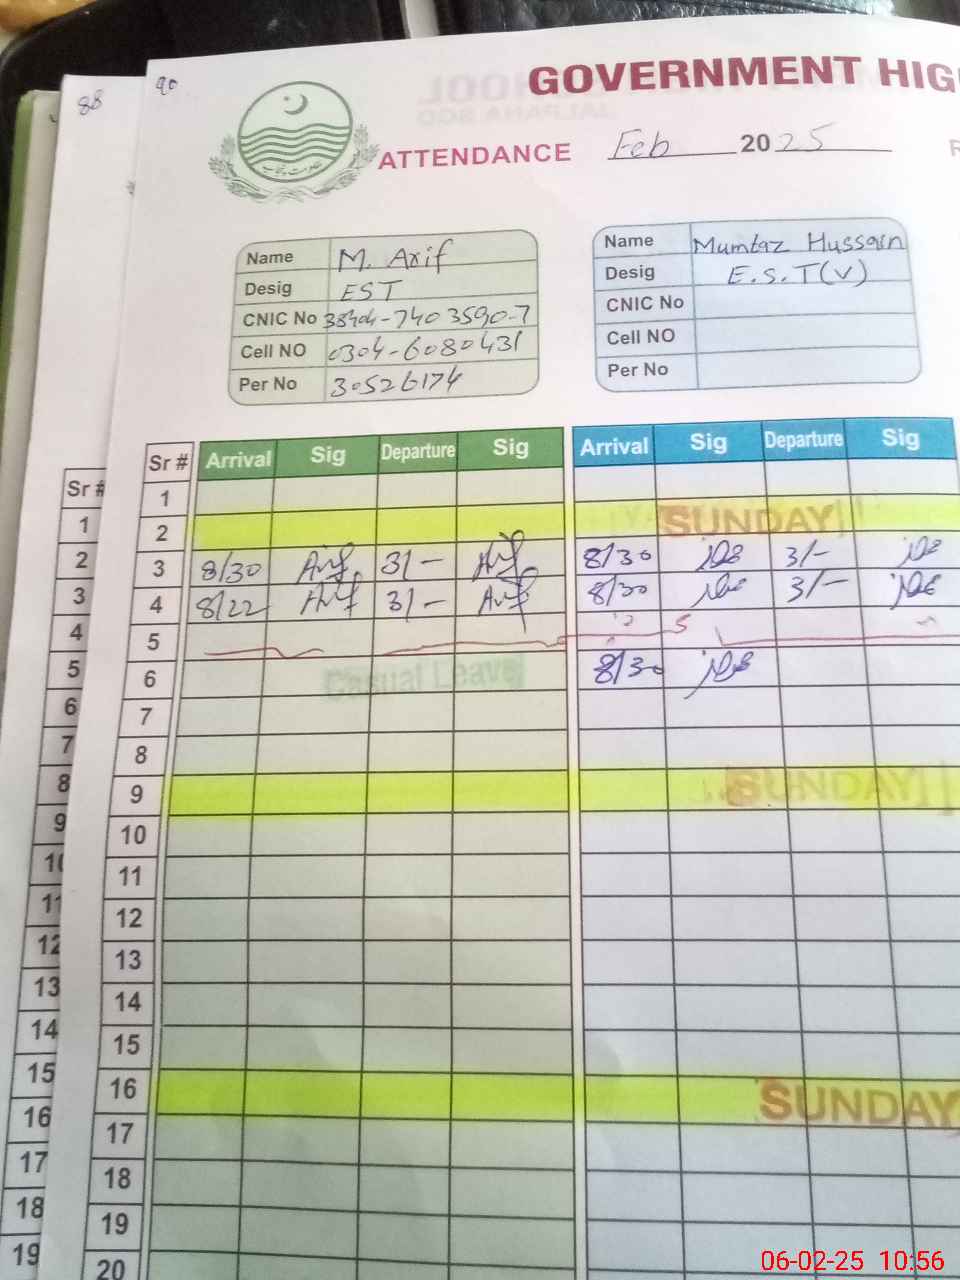 88
90
GOVERNMENT HIG
ATTENDANCE Feb 2025
Name M. Arif
Desig EST
CNIC No
Cell NO 0304-6080431
Per No 30526174
Name Mumtaz Hussain
Desig E.S.T(V)
CNIC No
Cell NO
Per No
Sr # Arrival Sig Departure Sig Arrival Sig Departure Sig
1
2 SUNDAY
3 8/30 Arif 3/- Arif 8/30 3/-
4 8/22 Arif 3/- Arif 8/30 3/-
5
6 Casual Leave 8/30
7
8
9 SUNDAY
10
11
12
13
14
15
16 SUNDAY
17
18
19
20
Sr #
1
2
3
4
5
6
7
8
9
10
11
12
13
14
15
16
17
18
19
06-02-25 10:56